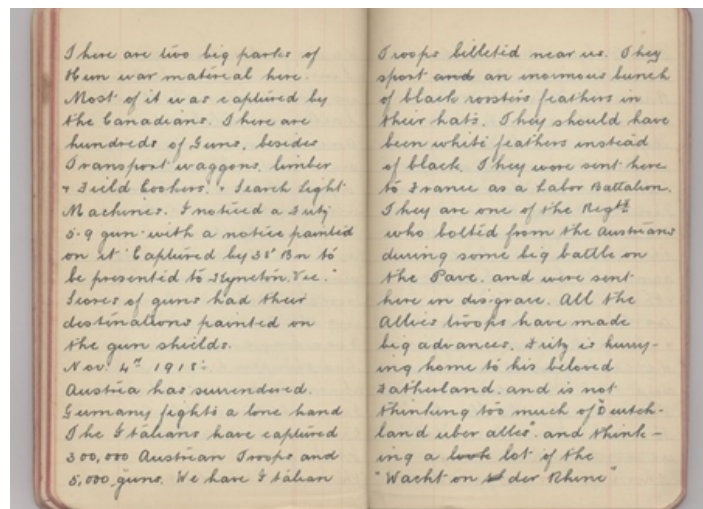 There are two big parks of
Hun war material here.
Most of it was captured by
the Canadians. There are
hundreds of Guns, besides
Transport waggons, limber
& Field Cookers. & Search Light
Machines. I noticed a Fritz
5.9 gun with a notice painted
on it "Captured by 38th Bn to
be presented to Vic."
Scores of guns had their
destinations painted on
the gun shields.
Nov. 4th 1918:
Austria has surrendered.
Germany fights a lone hand
The Italians have captured
300,000 Austrian Troops and
5,000 guns. We have Italian
Troops billetid near us. They
sport and an enormous bunch
of black roosters feathers in
their hats. They should have
been white feathers instead
of black. They were sent here
to France as a Labor Battalion.
They are one of the Regts
who bolted from the Austrians
during some big battle on
the Pave, and were sent
here in disgrace. All the
Allies troops have made
big advances. Fritz is hurry-
ing home to his beloved
Fatherland, and is not
thinking too much of "Deutch-
land uber alles" and think-
ing a lot of the
"Wacht on der Rhine"